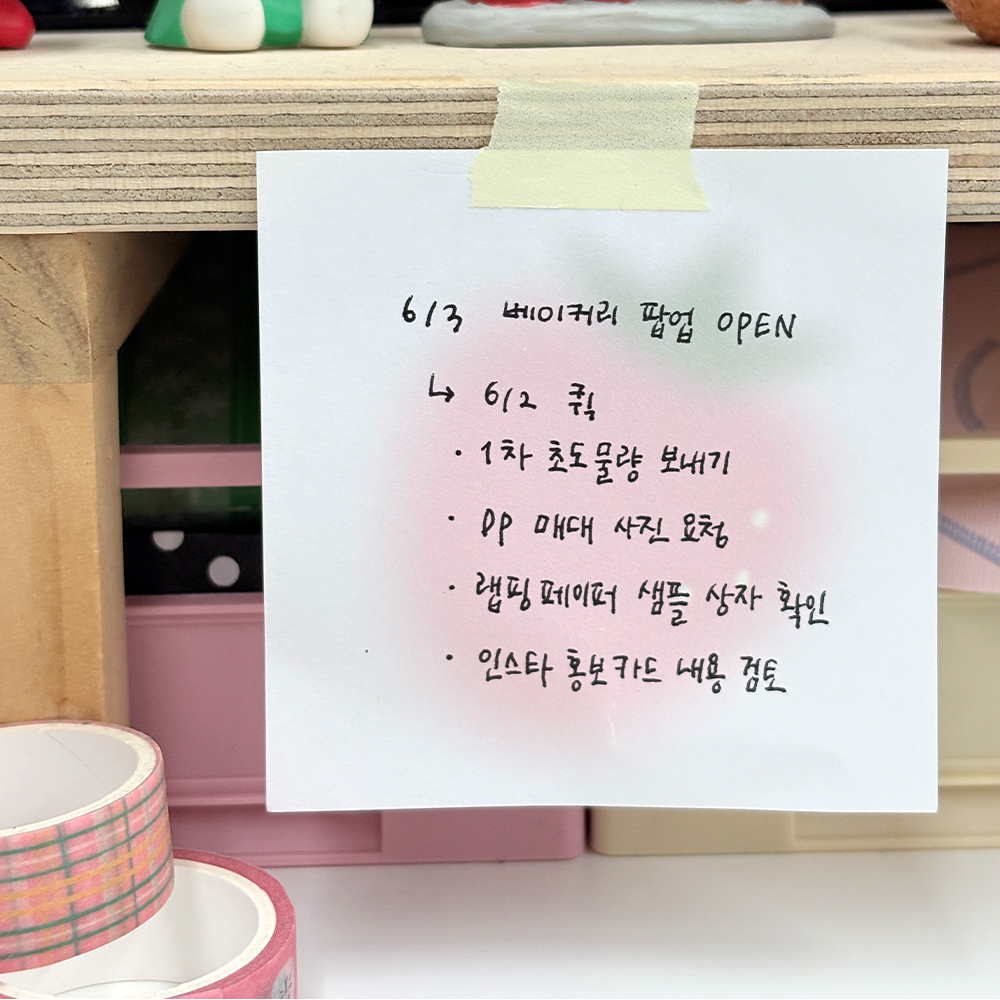 6/3 베이커리 팝업 OPEN
↳ 6/2 퀵
· 1차 초도물량 보내기
· DP 매대 사진 요청
· 랩핑페이퍼 샘플 상자 확인
· 인스타 홍보카드 내용 검토